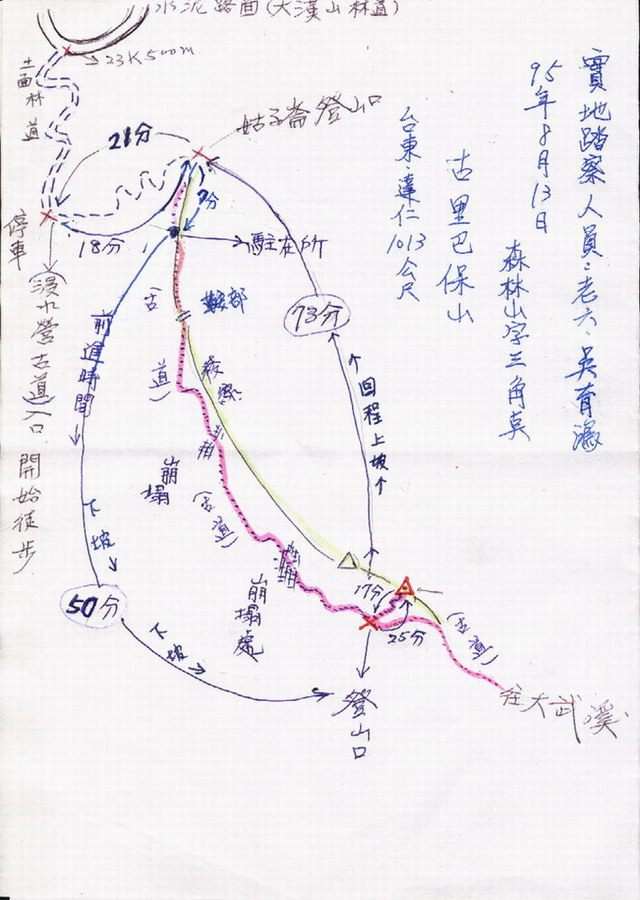 水泥路面(大漢山林道)
23K500m
土面林道
實地踏察人員:老六.吳育
95年8月13日
森林山字三角點
古里巴保山
台東.達仁1013公尺
姑子崙登山口
21分
7分
18分
停車
駐在所
浸水營古道入口.開始徒步
(古道)
鞍部
稜線
73分
↑回程上坡↑
前進時間
下坡
崩塌
(古道)
崩塌處
50分
下坡
17分
25分
(古道)
登山口
往大武溪